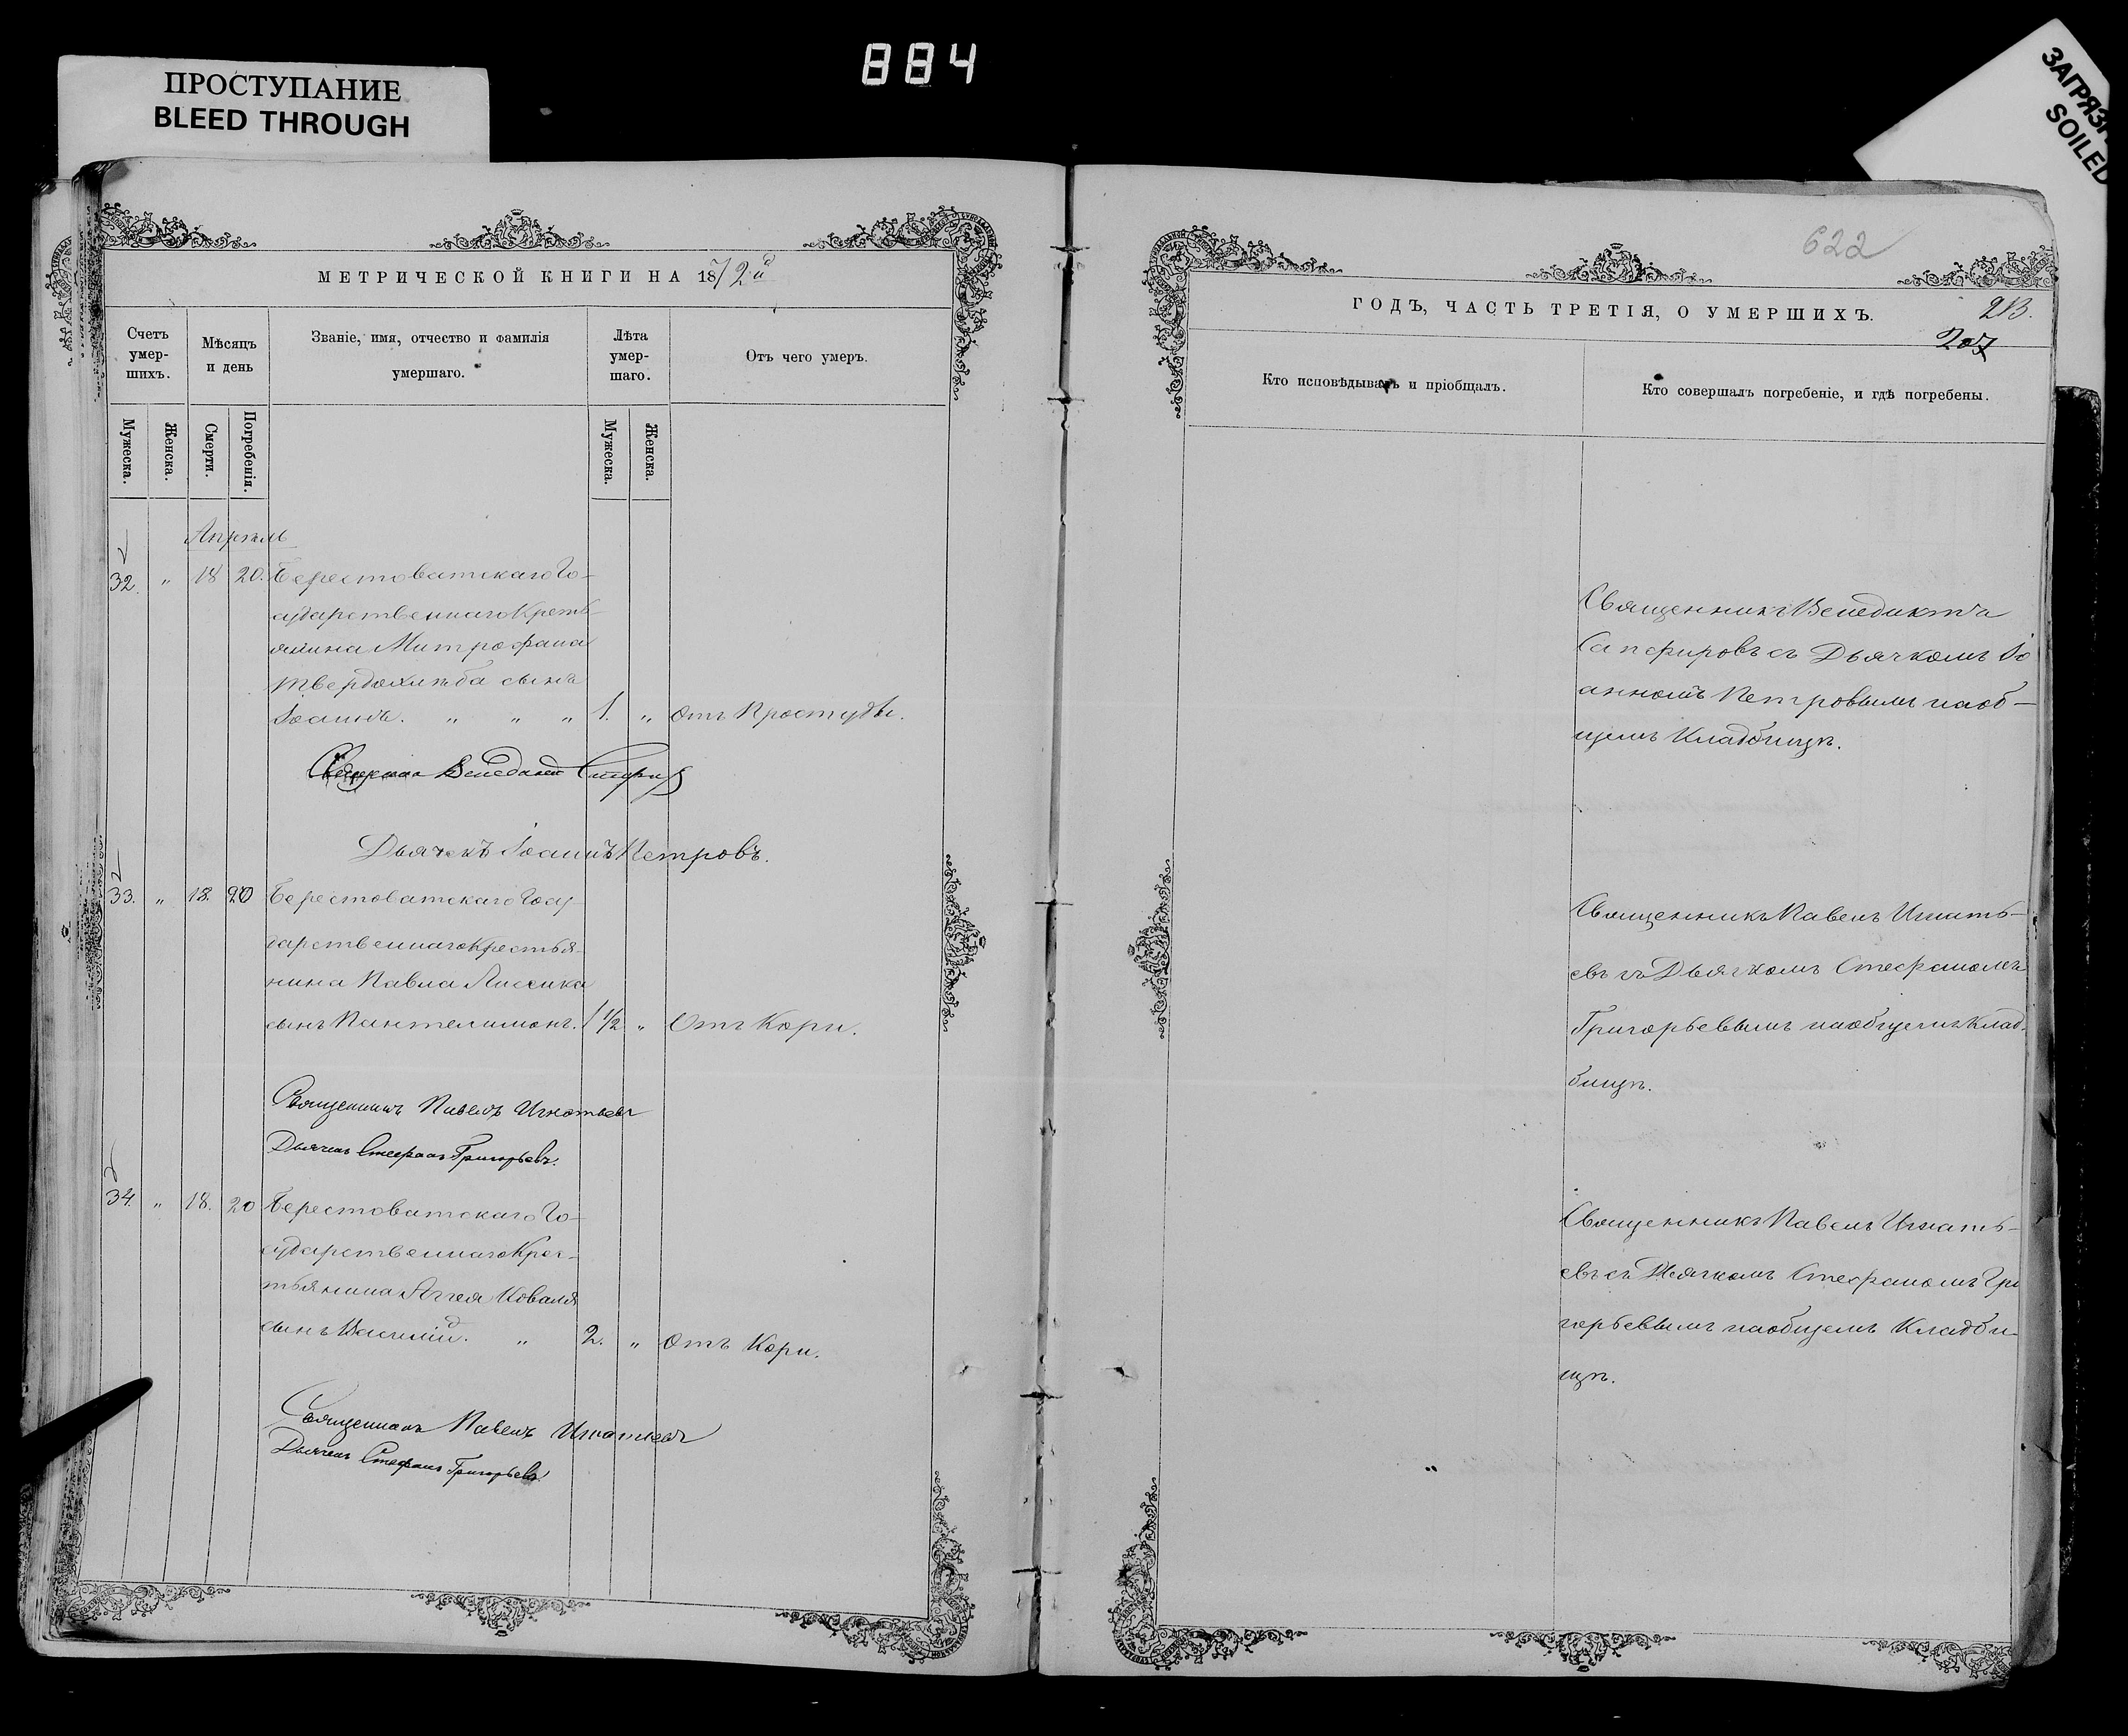 884
ПРОСТУПАНИЕ
BLEED THROUGH
SOILED
МЕТРИЧЕСКОЙ КНИГИ НА 1872й
Счетъ умер-шихъ.
Мѣсяцъ и день
Званіе, имя, отчество и фамилія умершаго.
Лѣта умер-шаго.
Отъ чего умеръ.
Мужеска.
Женска.
Смерти.
Погребенія.
Мужеска.
Женска.
Апрѣль
32. " 18 20. Берестоватскаго Го-
сударственнаго Кресть-
янина Митрофана
Твердохлѣба сынъ
Іоаннъ. " " " 1. " Отъ Простуды.
Священникъ Венедиктъ
Дьячекъ Іоаннъ Петровъ.
33. " 18. 20 Берестоватскаго Госу-
дарственнаго Крестья-
нина Павла
сынъ Пантелимонъ. 1 1/2 " Отъ Кори.
Священникъ Павелъ Игнатьевъ
Дьячекъ Стефанъ Григорьевъ.
34. " 18. 20 Берестоватскаго Го-
сударственнаго Крес-
тьянина Аггея Коваля
сынъ Василій. " 2. " Отъ Кори.
Священникъ Павелъ Игнатьевъ
Дьячекъ Стефанъ Григорьевъ
622
ГОДЪ, ЧАСТЬ ТРЕТІЯ, О УМЕРШИХЪ.
213.
207
Кто исповѣдывалъ и пріобщалъ.
Кто совершалъ погребеніе, и гдѣ погребены.
Священникъ Венедиктъ
Сапфировъ съ Дьячкомъ Іо
анномъ Петровымъ на об-
щемъ Кладбищѣ.
Священникъ Павелъ Игнать-
евъ съ Дьячкомъ Стефаномъ
Григорьевымъ на общемъ Клад-
бищѣ.
Священникъ Павелъ Игнать-
евъ съ Дьячкомъ Стефаномъ Гри
горьевымъ на общемъ Кладби-
щѣ.